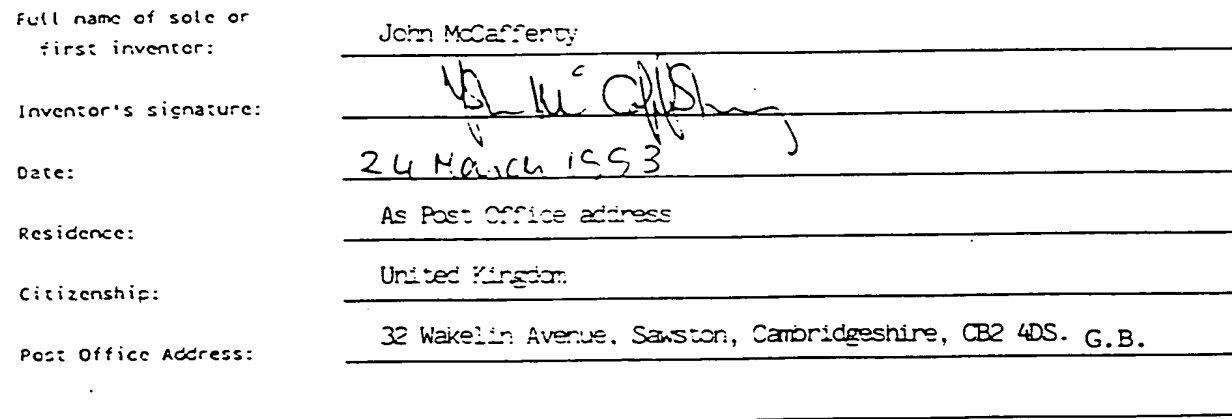 Full name of sole or
first inventor: John McCafferty
Inventor's signature: John McCafferty
Date: 24 March 1993
Residence: As Post Office address
Citizenship: United Kingdom
Post Office Address: 32 Wakelin Avenue, Sawston, Cambridgeshire, CB2 4DS. G.B.